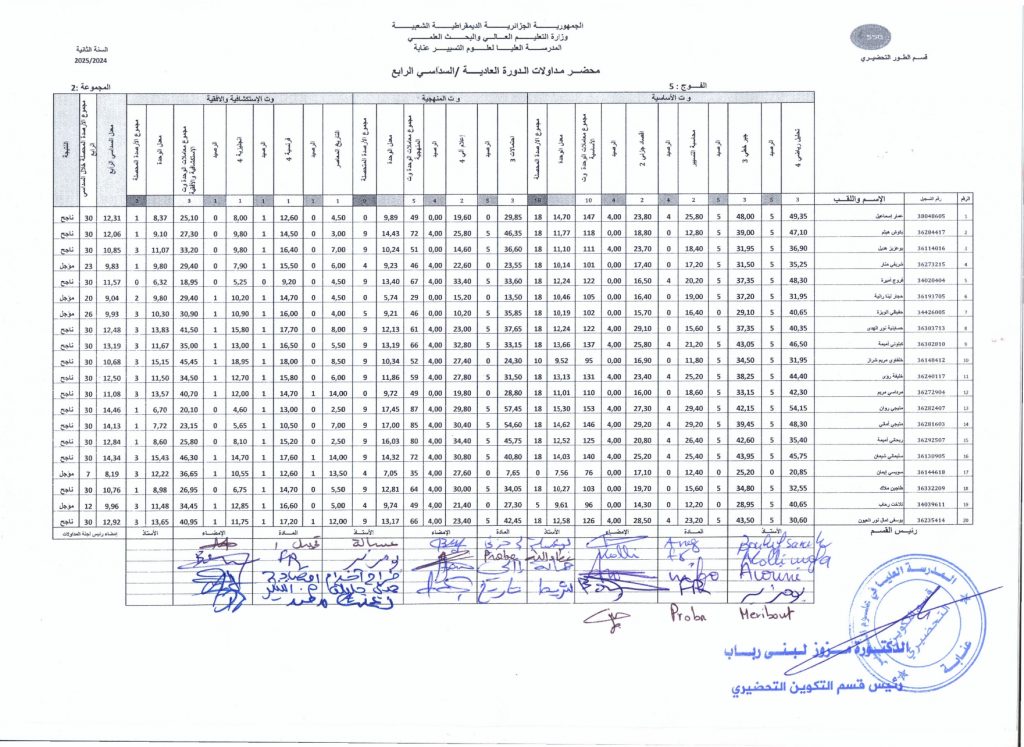 الجمهوريـــة الجزائريـــة الديمقراطيـــة الشعبيـــة
وزارة التعليـــم العـــالي والبحث العلمـــي
المدرســـة العليـــا لعلـــوم التسييـــر عنابة
SSG
قسم الطور التحضيري
السنة الثانية
2025/2024
محضـر مداولات الدورة العاديـــة /السداسـي الرابع
الفـــوج : 5
المجموعة :2
وت الأساسية
وت المنهجية
وت الإستكشافية والأفقية
تحليل رياضي 4 الرصيد جبر خطي 3 الرصيد محاسبة التسيير الرصيد اقتصاد جزئي 2 الرصيد مجموع معاملات الوحدة وت الأساسية معدل الوحدة مجموع الأرصدة المحصلة احتمالات 3 الرصيد إعلام الي 4 الرصيد مجموع معاملات الوحدة وت المنهجية معدل الوحدة مجموع الأرصدة المتحصلة التاريخ المعاصر الرصيد فرنسية 4 الرصيد انجليزية 4 الرصيد مجموع معاملات الوحدة وت الاستكشافية والأفقية معدل الوحدة مجموع الأرصدة المحصلة معدل السداسي الرابع مجموع الأرصدة المحصلة خلال السداسي الرابع النتيجة
الرقم رقم التسجيل الاســـم واللقـــب 3 5 3 5 2 4 2 4 10 18 3 5 2 4 5 9 1 1 1 1 1 1 3 3
1 38048605 عمار إسماعيل 49,35 5 48,00 5 25,80 4 23,80 4,00 147 14,70 18 29,85 0 19,60 0,00 49 9,89 0 4,50 0 12,60 1 8,00 0 25,10 8,37 1 12,31 30 ناجح
2 36284417 47,10 5 39,00 5 12,80 0 18,80 0,00 118 11,77 18 46,35 5 25,80 4,00 72 14,43 9 3,00 0 14,50 1 9,80 0 27,30 9,10 1 12,06 30 ناجح
3 36114016 بوعزيز هديل 36,90 5 31,95 5 18,40 0 23,70 4,00 111 11,10 18 36,60 5 14,60 0,00 51 10,24 9 7,00 0 16,40 1 9,80 0 33,20 11,07 3 10,85 30 ناجح
4 36273215 شريفي منار 35,25 5 31,50 5 17,20 0 17,40 0,00 101 10,14 18 23,55 0 22,60 4,00 46 9,23 4 6,00 0 15,50 1 7,90 0 29,40 9,80 1 9,83 23 مؤجل
5 34020404 فروج أميرة 48,30 5 37,35 5 20,20 4 16,50 0,00 122 12,24 18 33,60 5 33,40 4,00 67 13,40 9 4,50 0 9,20 0 5,25 0 18,95 6,32 0 11,57 30 ناجح
6 36193705 حجار لينا رانية 31,95 5 37,20 5 19,00 0 16,40 0,00 105 10,46 18 13,50 0 15,20 0,00 29 5,74 0 4,50 0 14,70 1 10,20 1 29,40 9,80 2 9,04 20 مؤجل
7 34426005 حفيظي الويزة 40,65 5 29,10 0 16,40 0 15,70 0,00 102 10,19 18 35,85 5 10,20 0,00 46 9,21 5 4,00 0 16,00 1 10,90 1 30,90 10,30 3 9,93 26 مؤجل
8 36303713 حساينية نور الهدى 40,35 5 37,35 5 15,60 0 29,10 4,00 122 12,24 18 37,65 5 23,00 4,00 61 12,13 9 8,00 0 17,70 1 15,80 1 41,50 13,83 3 12,48 30 ناجح
9 36302810 كيلوتي أميمة 46,50 5 43,05 5 21,20 4 25,80 4,00 137 13,66 18 33,15 5 32,80 4,00 66 13,19 9 5,50 0 16,50 1 13,00 1 35,00 11,67 3 13,19 30 ناجح
10 36148412 خلفلاوي مريم شراز 31,95 5 34,50 5 11,80 0 16,90 0,00 95 9,52 10 24,30 0 27,40 4,00 52 10,34 9 8,50 0 18,00 1 18,95 1 45,45 15,15 3 10,68 30 ناجح
11 36240117 خليفة رؤى 44,40 5 38,25 5 25,20 4 23,40 4,00 131 13,13 18 31,50 5 27,80 4,00 59 11,86 9 6,00 0 15,80 1 12,70 1 34,50 11,50 3 12,50 30 ناجح
12 36272904 مرداسي مريم 42,30 5 33,15 5 18,60 0 16,00 0,00 110 11,01 18 28,80 0 19,80 0,00 49 9,72 0 14,00 1 14,70 1 12,00 1 40,70 13,57 3 11,08 30 ناجح
13 36282407 مليجي روان 54,15 5 42,15 5 29,40 4 27,30 4,00 153 15,30 18 57,45 5 29,80 4,00 87 17,45 9 2,50 0 13,00 1 4,60 0 20,10 6,70 1 14,46 30 ناجح
14 36281603 مليجي أماني 48,30 5 39,45 5 29,20 4 29,20 4,00 146 14,62 18 54,60 5 30,40 4,00 85 17,00 9 7,00 0 10,50 1 5,65 0 23,15 7,72 1 14,13 30 ناجح
15 36292507 ريحاني أميمة 35,40 5 42,60 5 26,40 4 20,80 4,00 125 12,52 18 45,75 5 34,40 4,00 80 16,03 9 2,50 0 15,20 1 8,10 0 25,80 8,60 1 12,84 30 ناجح
16 36130905 سليماني شيماء 45,75 5 43,95 5 25,40 4 25,20 4,00 140 14,03 18 40,80 5 30,80 4,00 72 14,32 9 14,00 1 17,60 1 14,70 1 46,30 15,43 3 14,34 30 ناجح
17 36144618 سويسي إيمان 20,85 0 25,20 0 12,40 0 17,10 0,00 76 7,56 0 7,65 0 27,60 4,00 35 7,05 4 13,50 1 12,60 1 10,55 1 36,65 12,22 3 8,19 7 مؤجل
18 36332209 طاجين ملاك 32,55 5 34,80 5 15,60 0 19,70 0,00 103 10,27 18 34,05 5 30,00 4,00 64 12,81 9 5,50 0 14,70 1 6,75 0 26,95 8,98 1 10,76 30 ناجح
19 34039611 تلاخت رحاب 40,65 5 28,95 0 12,40 0 14,30 0,00 96 9,61 5 27,30 0 21,40 4,00 49 9,74 4 5,00 0 16,80 1 12,65 1 34,45 11,48 3 9,96 12 مؤجل
20 36235414 يوسفي امال نور العيون 30,60 5 43,50 5 23,20 4 28,50 4,00 126 12,58 18 42,45 5 23,40 4,00 66 13,17 9 12,00 1 17,20 1 11,75 1 40,95 13,65 3 12,92 30 ناجح
رئيـس القسـم الأستاذ المادة الإمضاء الأستاذ المادة الإمضاء الأستاذ المادة الإمضاء الأستاذ إمضاء رئيس لجنة المداولات
Proba
Proba Meribout
الدكتورة مزوز لبنى رباب
رئيس قسم التكوين التحضيري